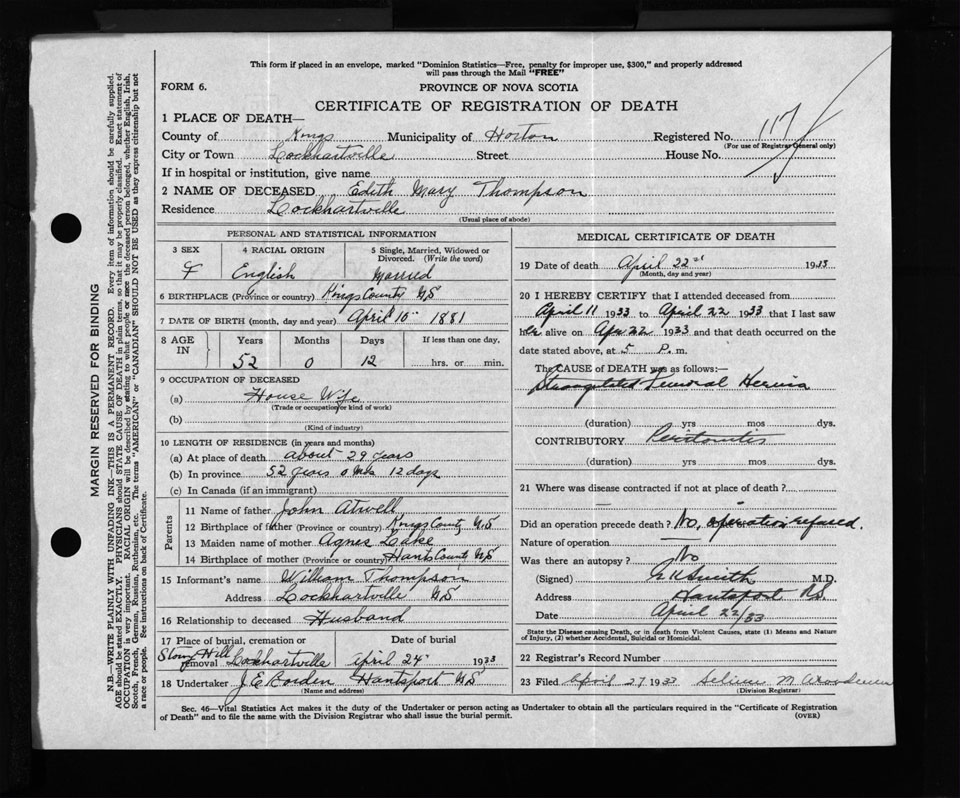 This form if placed in an envelope, marked "Dominion Statistics—Free, penalty for improper use, $300," and properly addressed
will pass through the Mail "FREE"
FORM 6.
PROVINCE OF NOVA SCOTIA
CERTIFICATE OF REGISTRATION OF DEATH
1 PLACE OF DEATH—
County of Kings Municipality of Horton Registered No. 117
(For use of Registrar General only)
City or Town Lockhartville Street House No.
If in hospital or institution, give name
2 NAME OF DECEASED Edith Mary Thompson
Residence Lockhartville
(Usual place of abode)
PERSONAL AND STATISTICAL INFORMATION
3 SEX 4 RACIAL ORIGIN 5 Single, Married, Widowed or
Divorced. (Write the word)
F English Married
6 BIRTHPLACE (Province or country) Kings County NS
7 DATE OF BIRTH (month, day and year) April 10" 1881
8 AGE IN Years Months Days If less than one day,
52 0 12 hrs. or min.
9 OCCUPATION OF DECEASED
(a) House Wife
(Trade or occupation or kind of work)
(b)
(Kind of industry)
10 LENGTH OF RESIDENCE (in years and months)
(a) At place of death about 29 years
(b) In province 52 years 0 mos 12 days
(c) In Canada (if an immigrant)
Parents
11 Name of father John Atwell
12 Birthplace of father (Province or country) Kings County NS
13 Maiden name of mother Agnes Lake
14 Birthplace of mother (Province or country) Hants County NS
15 Informant's name William Thompson
Address Lockhartville NS
16 Relationship to deceased Husband
17 Place of burial, cremation or Date of burial
Stony Hill
removal Lockhartville April 24" 1933
18 Undertaker J E Borden Hantsport NS
(Name and address)
MEDICAL CERTIFICATE OF DEATH
19 Date of death April 22nd 1933
(Month, day and year)
20 I HEREBY CERTIFY that I attended deceased from
April 11 1933 to April 22 1933 that I last saw
her alive on Apr 22 1933 and that death occurred on the
date stated above, at 5 P. m.
The CAUSE of DEATH was as follows:—
Strangulated Femoral Hernia
(duration) yrs mos dys.
CONTRIBUTORY Peritonitis
(duration) yrs. mos. dys.
21 Where was disease contracted if not at place of death?
Did an operation precede death? No, operation refused.
Nature of operation
Was there an autopsy? No
(Signed) Smith M.D.
Address Hantsport NS.
Date April 22/33
State the Disease causing Death, or in death from Violent Causes, state (1) Means and Nature
of Injury, (2) whether Accidental, Suicidal or Homicidal.
22 Registrar's Record Number
23 Filed April 27 1933
(Division Registrar)
Sec. 46—Vital Statistics Act makes it the duty of the Undertaker or person acting as Undertaker to obtain all the particulars required in the "Certificate of Registration
of Death" and to file the same with the Division Registrar who shall issue the burial permit.
(OVER)
MARGIN RESERVED FOR BINDING
N.B.—WRITE PLAINLY WITH UNFADING INK—THIS IS A PERMANENT RECORD. Every item of information should be carefully supplied.
AGE should be stated EXACTLY. PHYSICIANS should STATE CAUSE OF DEATH in plain terms, so that it may be properly classified. Exact statement of
OCCUPATION is very important. RACIAL ORIGIN will be described by stating to what people or race the deceased person belonged, whether English, Irish,
Scotch, French, German, Russian, Ruthenian, etc. The terms "AMERICAN" or "CANADIAN" SHOULD NOT BE USED as they express citizenship but not
a race or people. See instructions on back of Certificate.